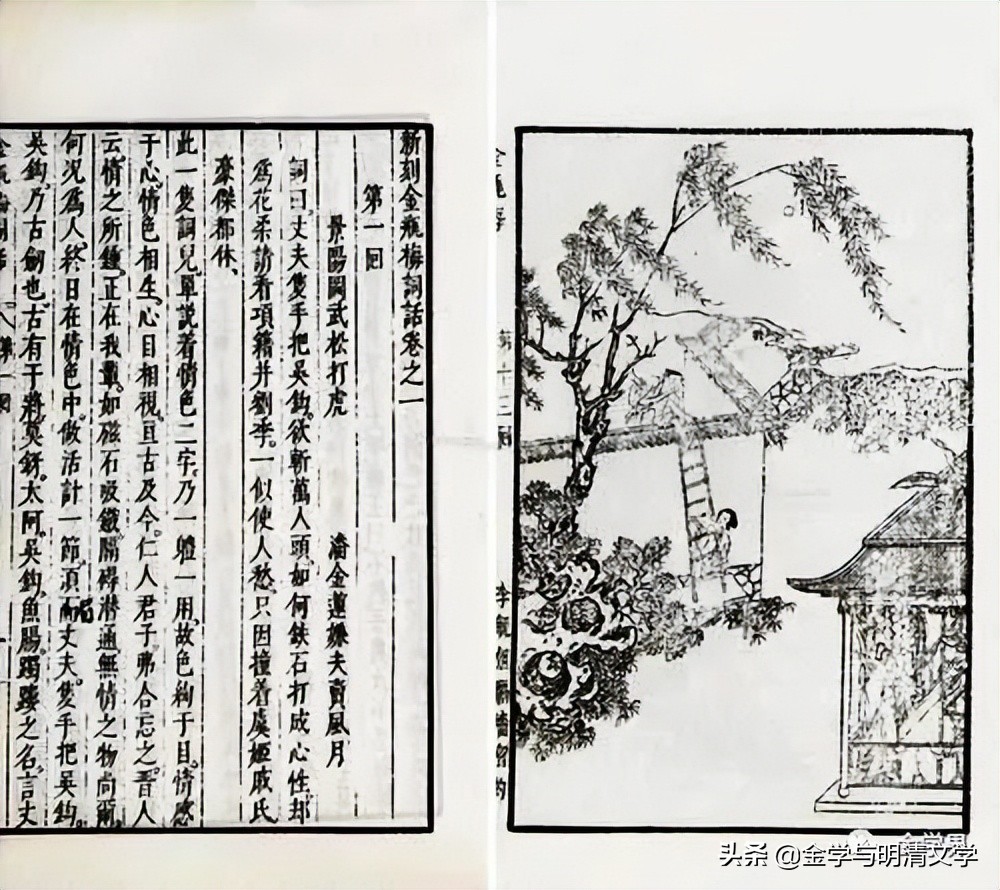 新刻金瓶梅詞話卷之一
第一回
景陽岡武松打虎　潘金蓮嫌夫賣風月
詞曰。丈夫隻手把吳鈎。欲斬萬人頭。如何鉄石打成心性。却
爲花柔請看項籍并劉季。一似使人愁。只因撞着虞姬戚氏
豪傑都休、
此一隻詞兒單説着情色二字。乃一體一用。故色絢于目。情感
于心。情色相生。心目相視。亘古及今。仁人君子。弗合忘之。晋人
云。情之所鍾。正在我輩。如磁石吸鐵。隔碍潛通。無情之物尚爾。
何況爲人。終日在情色中。做活計一節。須而丈夫隻手把吳鈎。
吳鈎。乃古劒也。古有干將。莫鋣。太阿。吳鈎。魚腸。躅之名。言丈
第一回
金瓶梅
第十三回
李瓶姐隔墻密約
头条 @金学与明清文学